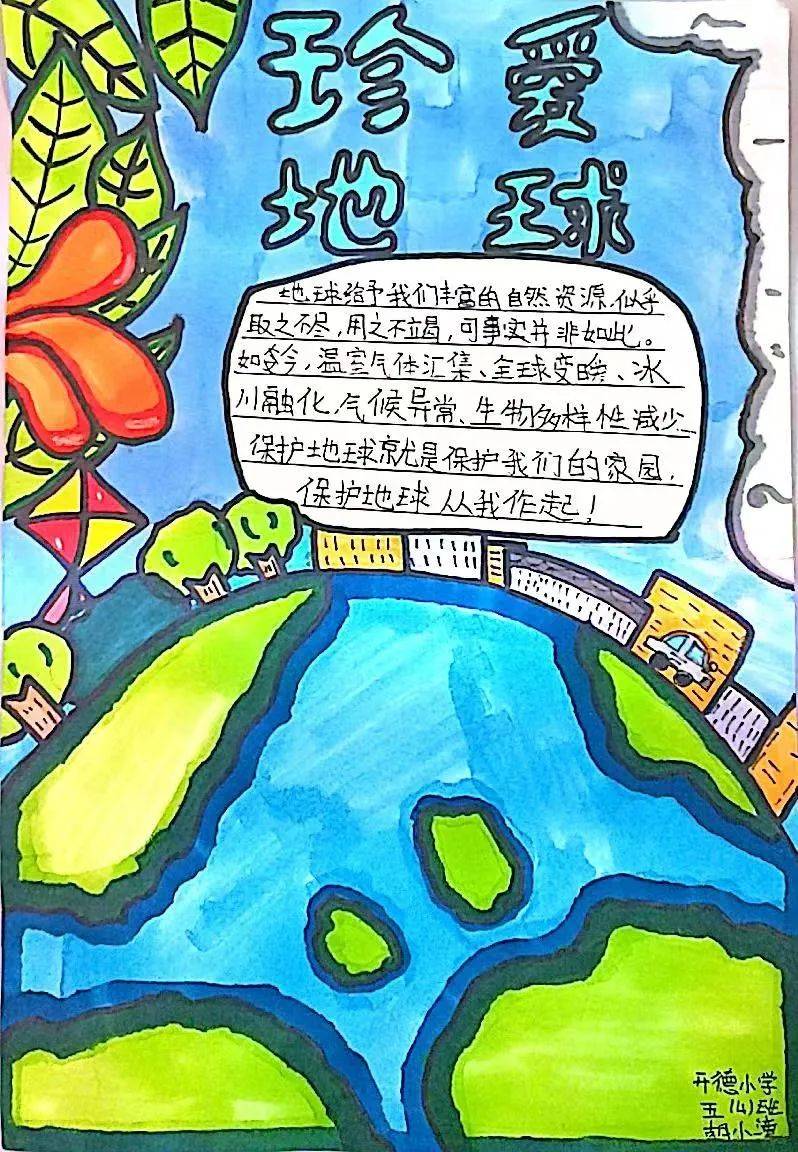 珍愛
地球
地球给予我们丰富的自然资源,似乎
取之不尽,用之不竭,可事实并非如此。
如今,温室气体汇集、全球变暖、冰
川融化,气候异常、生物多样性减少
保护地球就是保护我们的家园,
保护地球从我作起!
开德小学
五(4)班
胡小